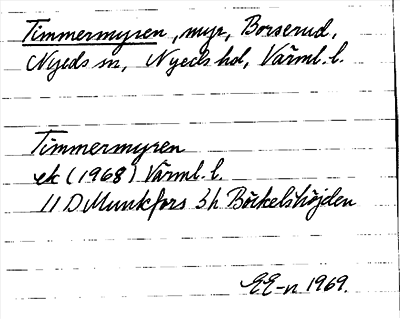 Timmermyren, myr, Borserud,
Nyeds sn, Nyeds hd, Värml. l.
Timmermyren
ek (1968) Värml. l.
11 D Munkfors 3h Böckelshöjden
EE-n 1969.